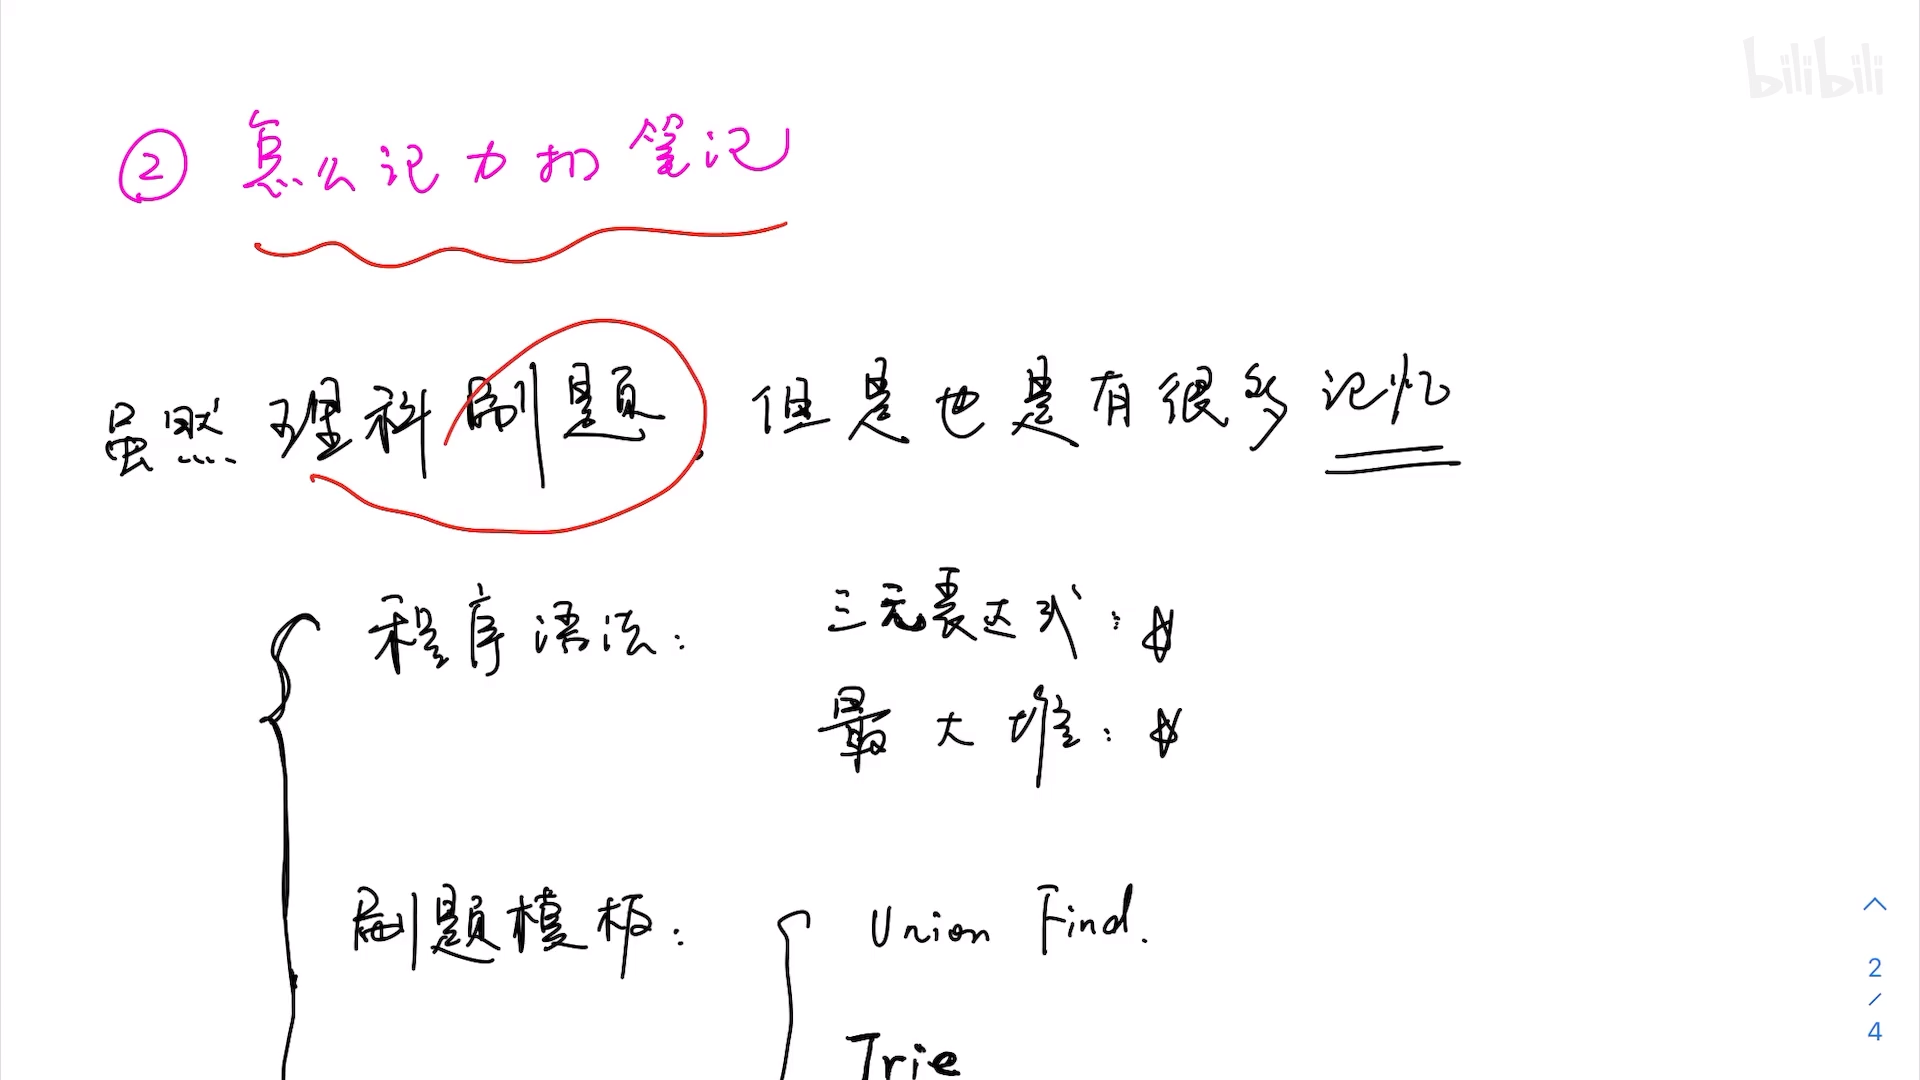 bilibili
② 怎么记力扣笔记
虽然 理科刷题. 但是也是有很多记忆
程序语法: 三元表达式:
最大堆:
刷题模板: Union Find.
Trie
2
/
4